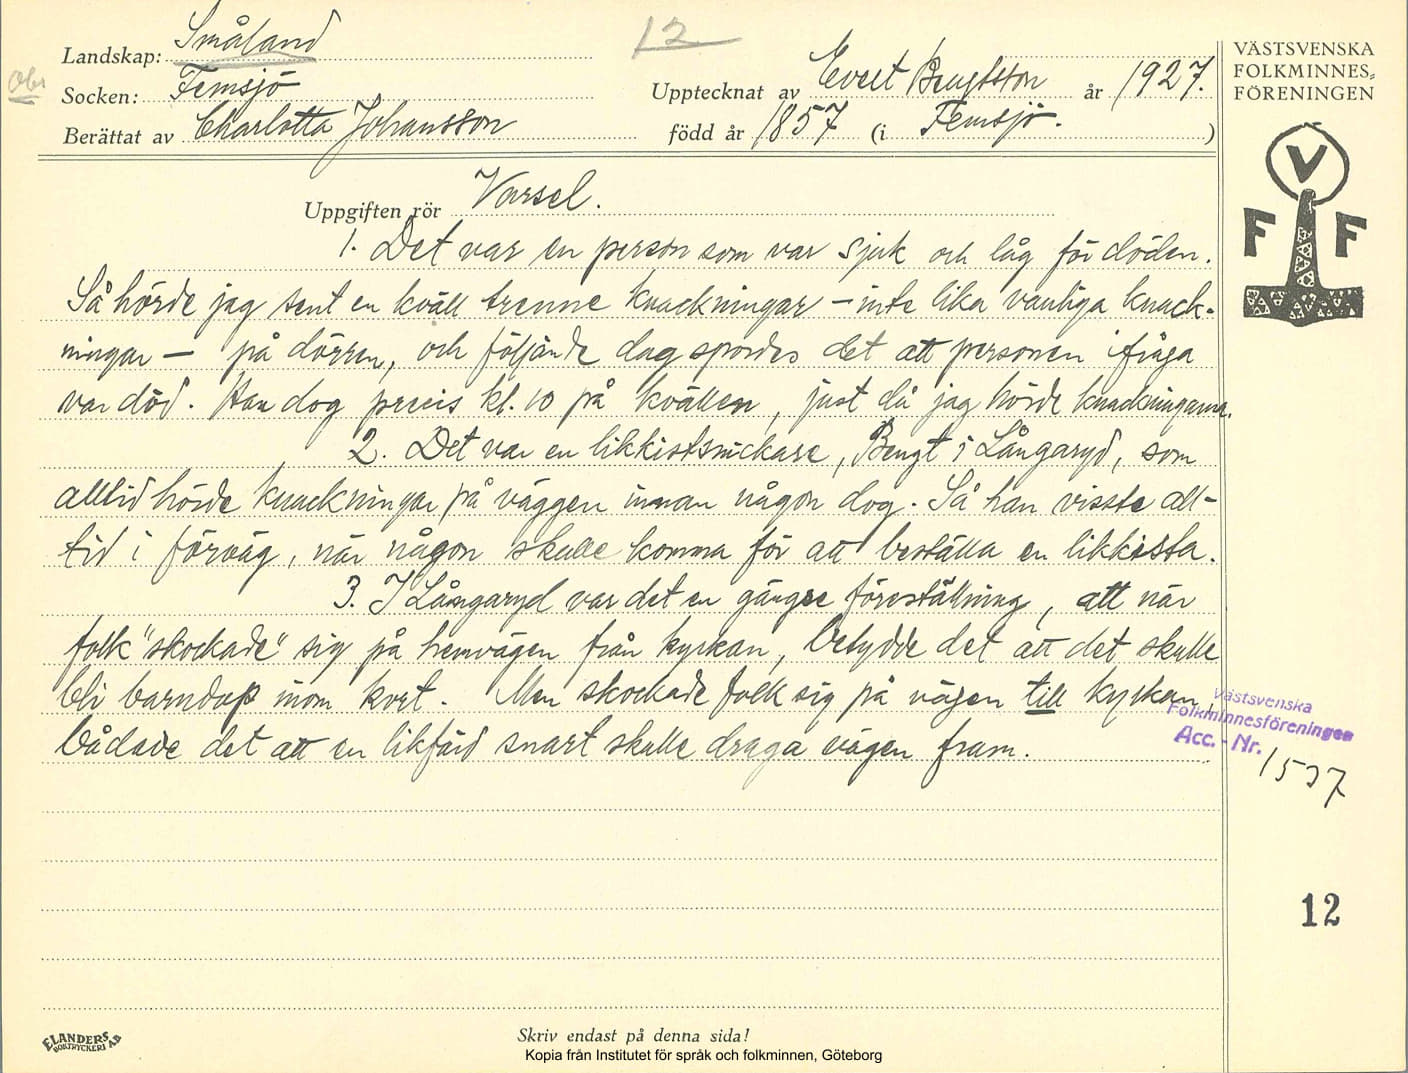 12
Landskap: Småland
Obs
Socken: Femsjö
Upptecknat av Evert Bengtsson år 1927.
Berättat av Charlotta Johansson född år 1857 (i Femsjö. )
VÄSTSVENSKA
FOLKMINNES-
FÖRENINGEN
V
F F
Uppgiften rör Varsel.
1. Det var en person som var sjuk och låg för döden.
Så hörde jag sent en kväll trenne knackningar – inte lika vanliga knack-
ningar – på dörren, och följande dag spordes det att personen ifråga
var död. Han dog precis kl. 10 på kvällen, just då jag hörde knackningarna.
2. Det var en likkistsnickare, Bengt i Långaryd, som
alltid hörde knackningar på väggen innan någon dog. Så han visste all-
tid i förväg, när någon skulle komma för att beställa en likkista.
3. I Långaryd var det en gängse föreställning, att när
folk "skockade" sig på hemvägen från kyrkan, betydde det att det skulle
bli barndop inom kort. Men skockade folk sig på vägen till kyrkan,
bådade det att en likfärd snart skulle draga vägen fram.
Västsvenska
Folkminnesföreningen
Acc. - Nr. 1537
12
ELANDERS
BOKTRYCKERI AB
Skriv endast på denna sida!
Kopia från Institutet för språk och folkminnen, Göteborg